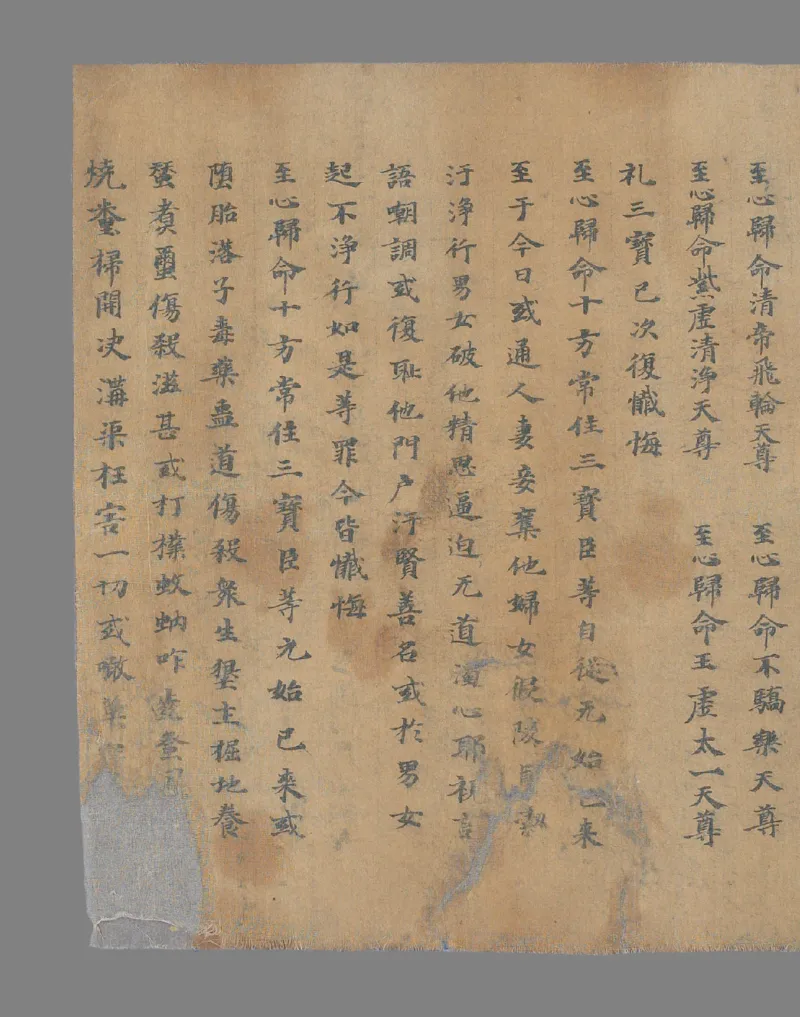 至心歸命清帝飛輪天尊　至心歸命不驕樂天尊
至心歸命紫虛清淨天尊　至心歸命玉虛太一天尊
礼三寶已次復懺悔
至心歸命十方常住三寶臣等自從无始已来
至于今日或通人妻妾棄他婦女假陵
汙淨行男女破他精思逼迫无道濁心耶
語嘲調或復耻他門户汙賢善名或於男女
起不淨行如是等罪今皆懺悔
至心歸命十方常住三寶臣等无始已来或
堕胎落子毒藥蠱道傷殺衆生墾土掘地養
蚕煮蠒傷殺滋甚或打撲蚊蚋咋
燒糞掃開决溝渠枉害一切或